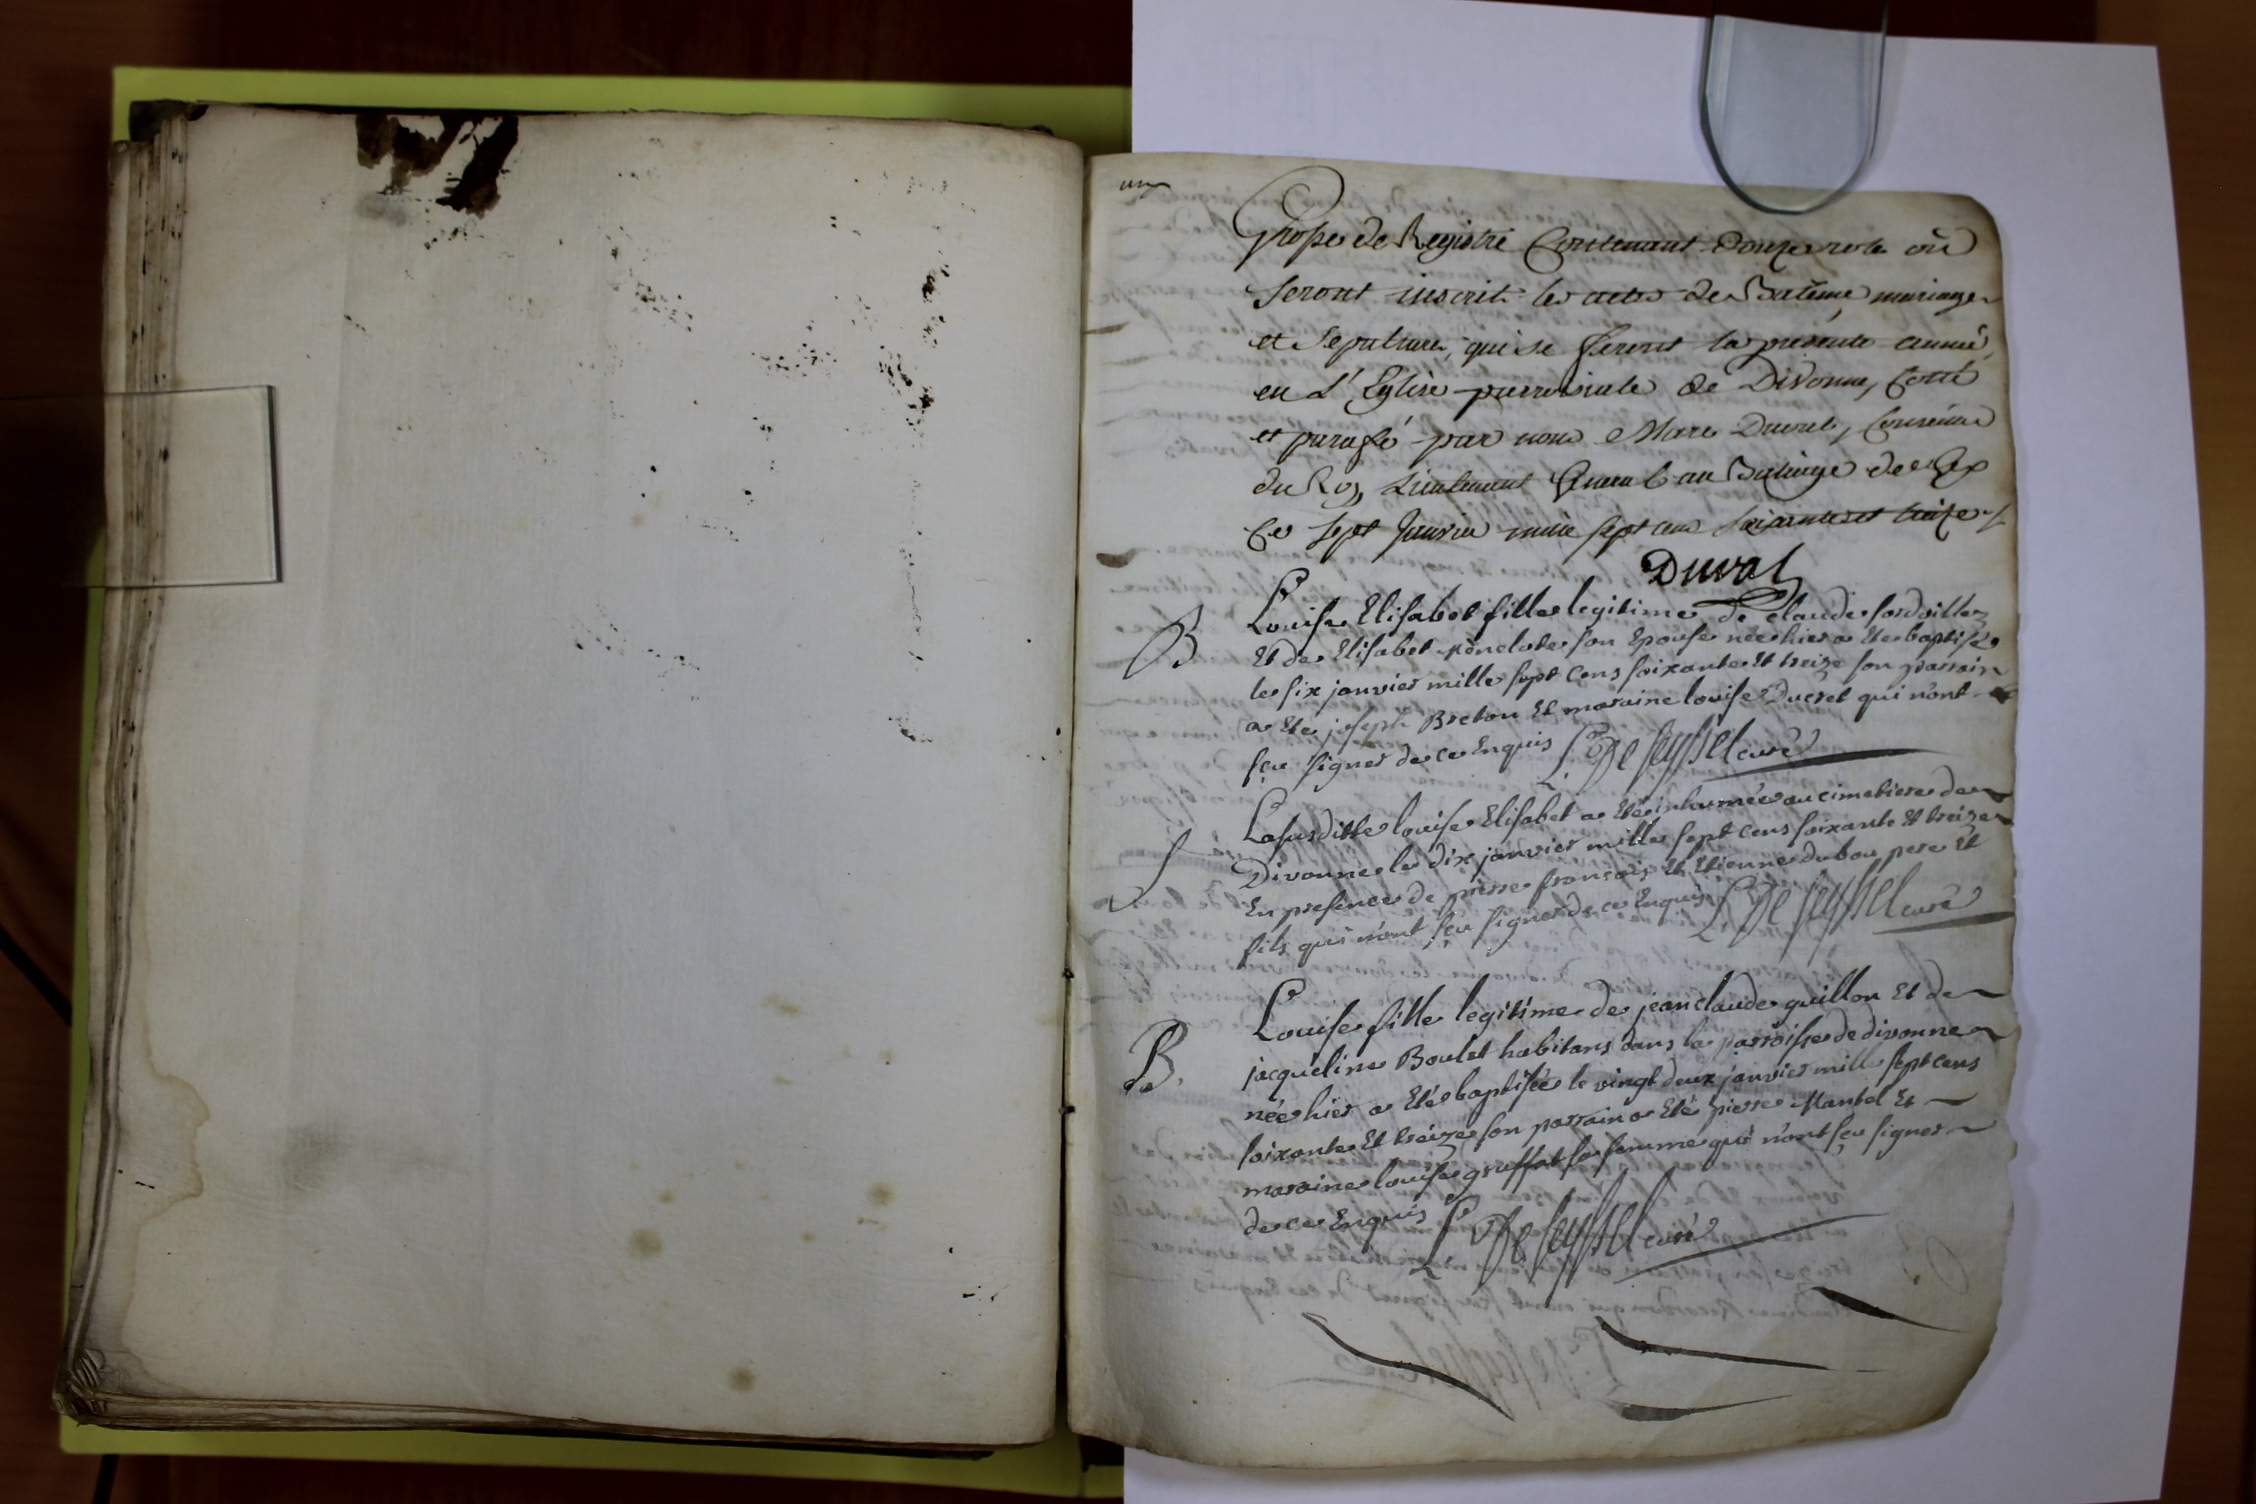 un
Grosse de Registre Contenant douze role où
seront inscrit les actes de Batême, mariage
et Sepulture, qui se feront la presente année,
en L'Eglise parroisiale de Divonne, Cotté
et parafé par nous Marc Duval, Conseiller
du Roy, Lieutenant General au Baliage de Gex
Ce sept Janvier mille sept cens soixante et treize
Duval
B
Louise Elisabet fille legitime de claude
Et de Elisabet son Epouse née hier a Eté baptisée
le six janvier mille sept cens soixante Et treize son parrain
a Eté joseph Breton Et maraine louise Ducret qui n'ont
sçu signer de ce Enquis De Seyssel curé
S
La susditte louise Elisabet a Eté inhumée au cimetiere de
Divonne le dix janvier mille sept cens soixante Et treize
En presence de pierre françois Et Etienne dubou pere Et
fils qui n'ont sçu signer de ce Enquis De Seyssel curé
B.
Louise fille legitime de jean claude guillon Et de
jacqueline Boulet habitans dans la parroisse de divonne
née hier a Eté baptisée le vingt deux janvier mille sept cens
soixante Et treize son parrain a Eté pierre Mantel Et
maraine louise gruffat sa femme qui n'ont sçu signer
de ce Enquis De Seyssel curé